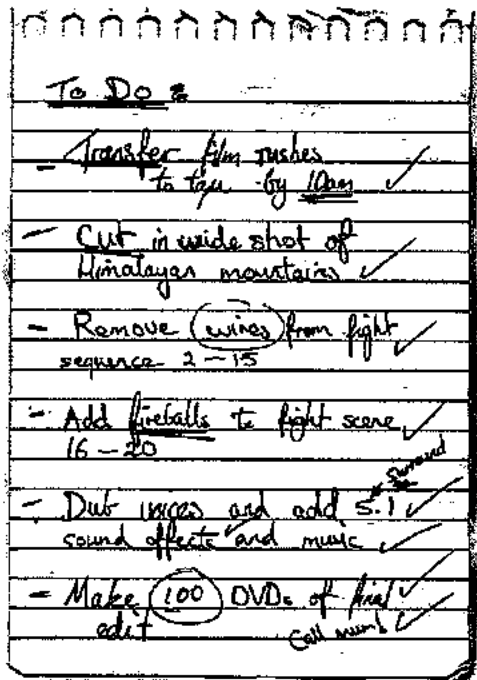 To Do :
- Transfer film rushes
to tape by 10am
- Cut in wide shot of
Himalayan mountains
- Remove wires from fight
sequence 2 - 15
- Add fireballs to fight scene
16 - 20
surround
- Dub voices and add 5.1
sound effects and music
- Make 100 DVDs of final
edit
Call mum!